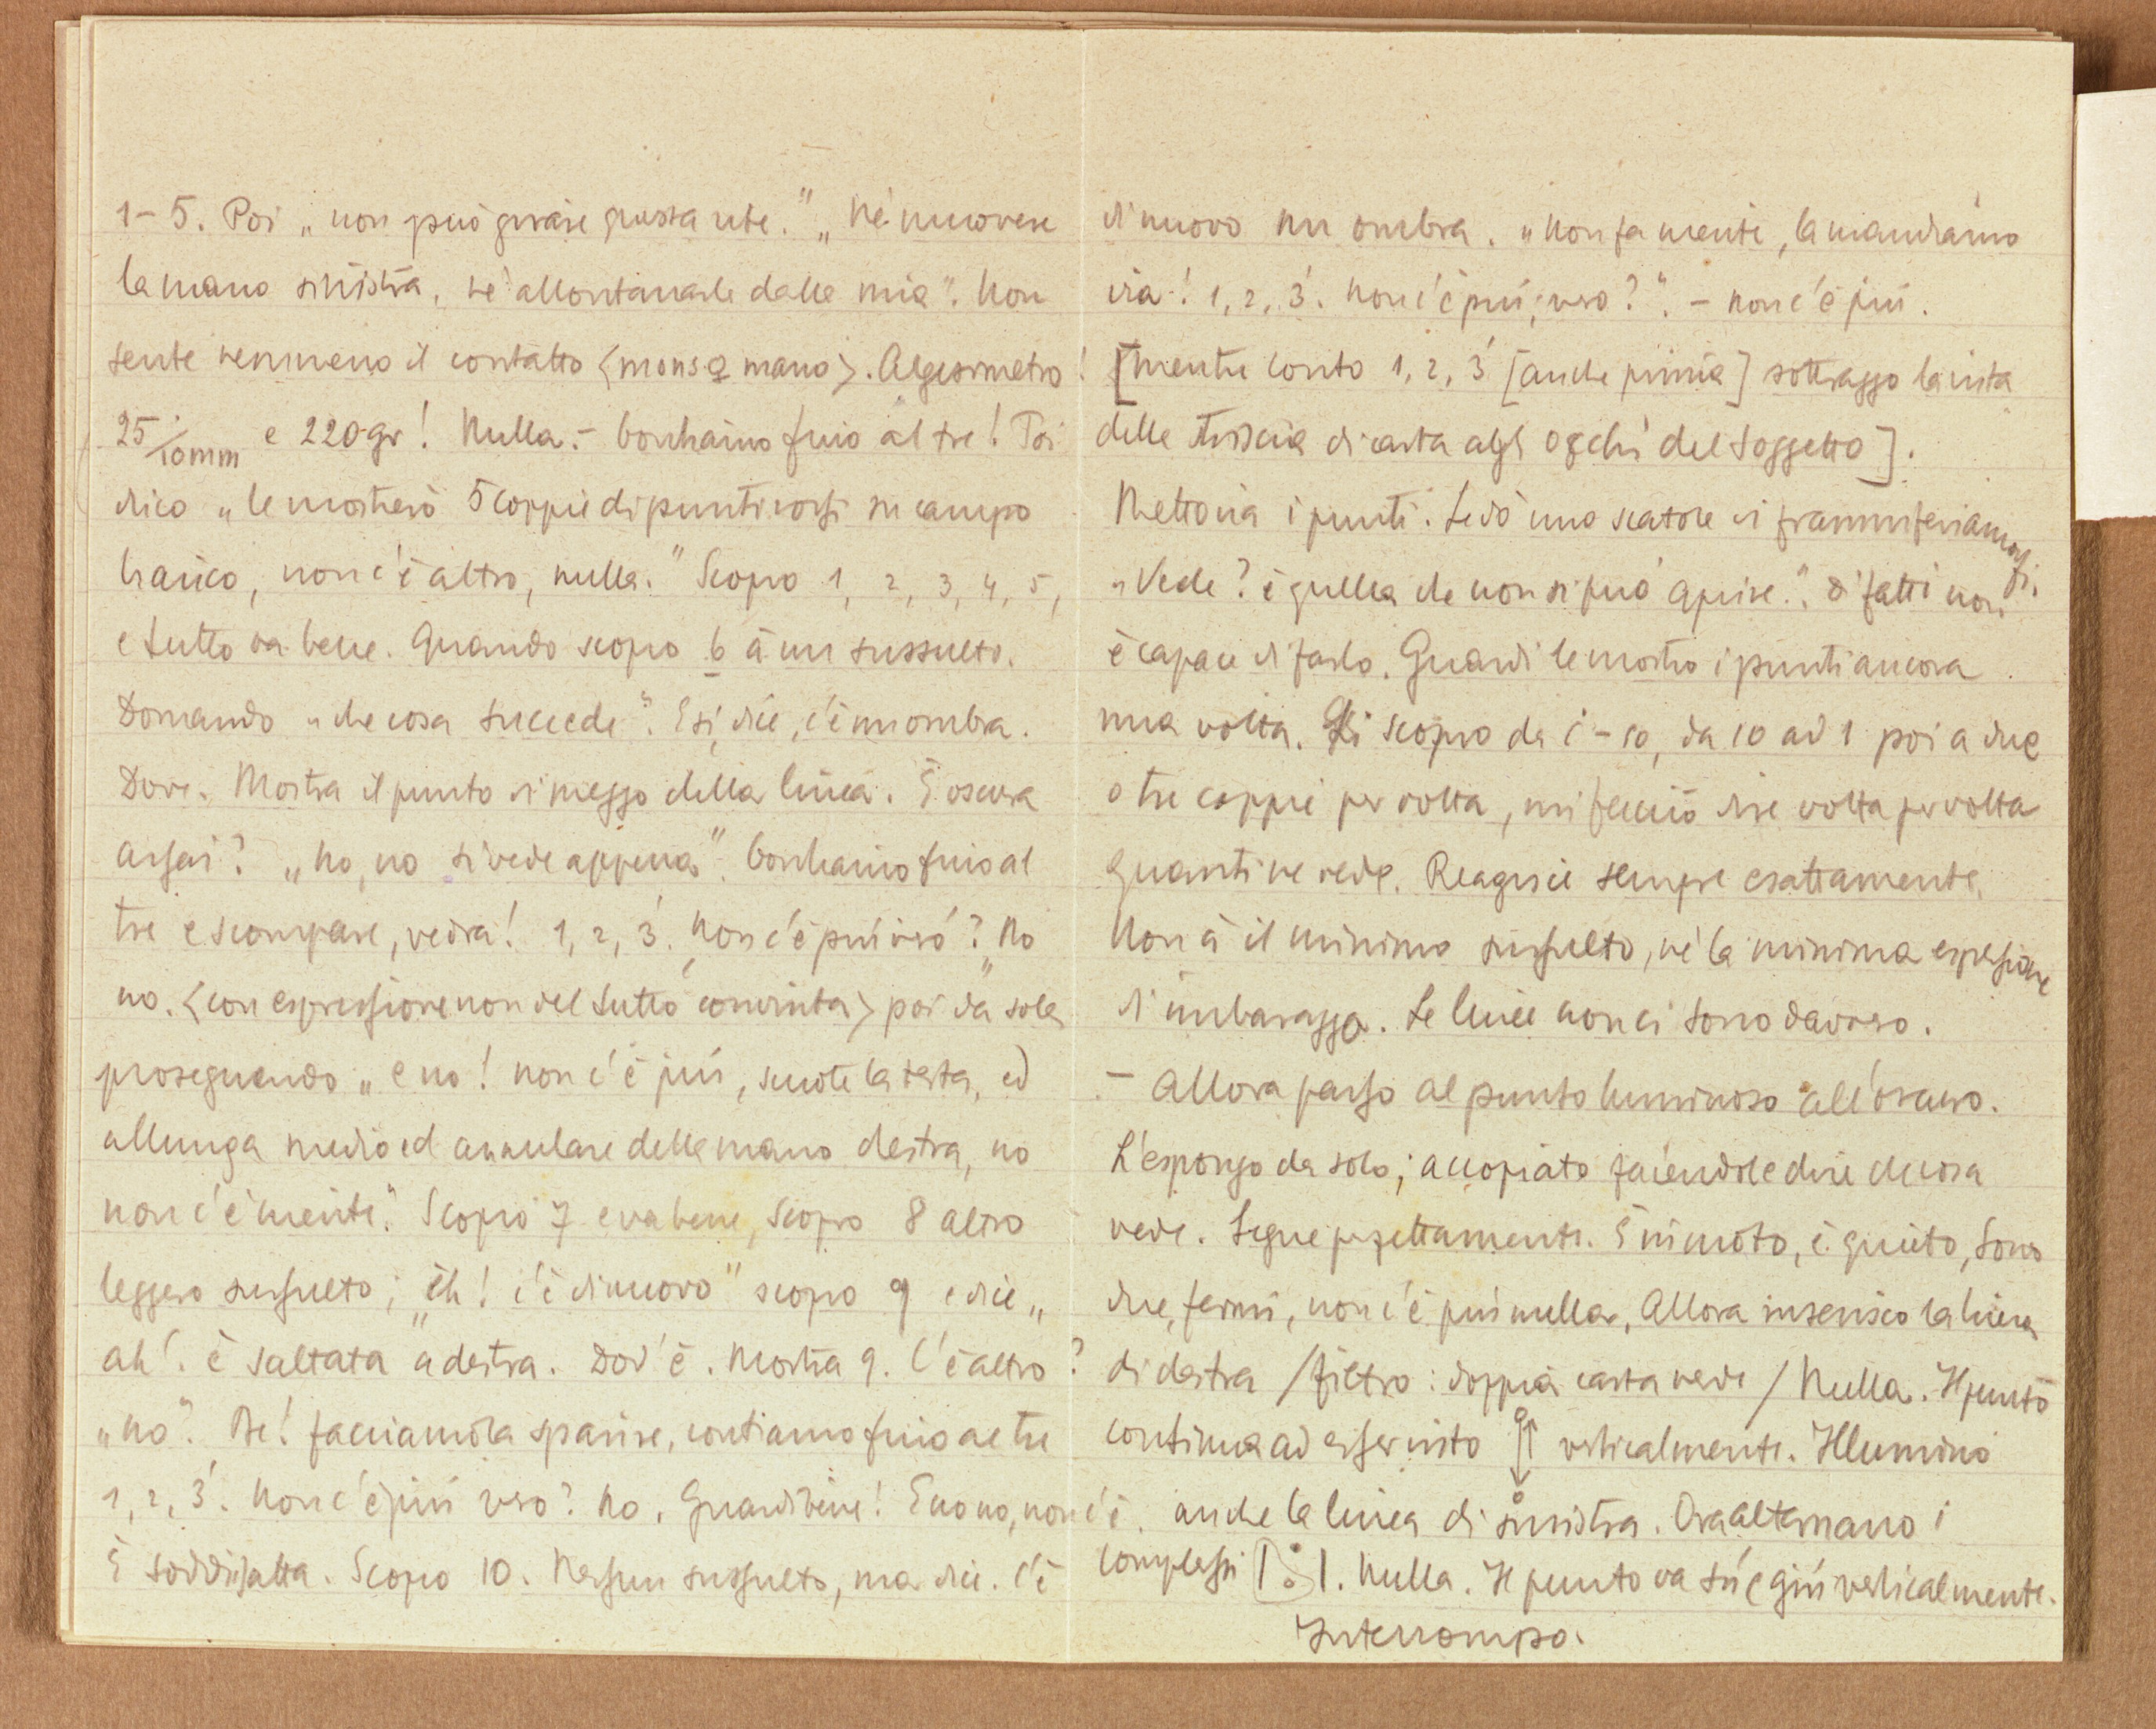 1–5. Poi „non può girare questa rete.” „Né muovere
la mano sinistra, né allontanarla dalla mia”. Non
sente nemmeno il contatto <mano>. Algesimetro!
25/10mm e 220 gr! Nulla. – Contiamo fino al tre! Poi
dico „le mostrerò 5 coppie di punti rossi su campo
bianco, non c'è altro, nulla.” Scopro 1, 2, 3, 4, 5,
e tutto va bene. Quando scopro 6 à un sussulto.
Domando „che cosa succede”. E sì, dice, c'è un ombra.
Dove. Mostra il punto di mezzo della linea. È oscura
assai? „No, no si vede appena”. Contiamo fino al
tre e scompare, vedrà! 1, 2, 3. Non c'è più vero? „No
no. <con espressione non del tutto convinta> poi da sola
proseguendo „e no! non c'è più, scuote la testa, ed
allunga medio ed annulare della mano destra, no
non c'è niente.” Scopro 7 e va bene, scopro 8 altro
leggero sussulto; „eh! c'è di nuovo” scopro 9 e dice „
ah! è saltata a destra. Dov'è. Mostra 9. C'è altro?
„No”. Be! facciamola sparire, contiamo fino al tre
1, 2, 3. Non c'è più vero? No. Guardi bene! E no no, non c'è.
È soddisfatta. Scopro 10. Nessun sussulto, ma dice. C'è
di nuovo un ombra. „Non fa niente, la mandiamo
via! 1, 2, 3. Non c'è più, vero?”. – Non c'è più.
[mentre conto 1, 2, 3 [anche prima] sottraggo la vista
della striscia di carta agli occhi del soggetto].
Metto via i punti. Le dò una scatola di fiammiferi
„Vede? è quella che non si può aprire.”. Difatti non
è capace di farlo. Guardi le mostro i punti ancora
una volta. Li scopro da 1–10, da 10 ad 1 poi a due
o tre coppie per volta, mi faccio dire volta per volta
quanti ne vede. Reagisce sempre esattamente.
Non à il minimo sussulto, né la minima espressione
d'imbarazzo. Le linee non ci sono davvero.
– Allora passo al punto luminoso all'oscuro.
L'espongo da solo; accopiato facendole dire che cosa
vede. Segue perfettamente. È in moto, è quieto, sono
due, fermi, non c'è più nulla. Allora inserisco la linea
di destra /filtro: doppia carta verde / Nulla. Il punto
continua ad esser visto ↕ verticalmente. Illumino
anche la linea di sinistra. Ora alternano i
complessi | : |. Nulla. Il punto va sù e giù verticalmente.
Interrompo.